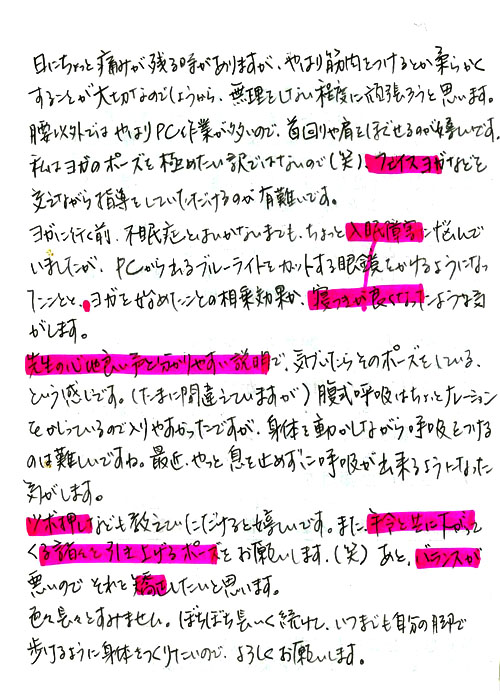 日にちょっと痛みが残る時がありますが、やはり筋肉をつけるとか柔らかく
することが大切なのでしょうから、無理をしない程度に頑張ろうと思います。
腰以外ではやはりPC作業が多いので、首回りや肩をほぐせるのが嬉しいです。
私はヨガのポーズを極めたい訳ではないので(笑)、フェイスヨガなどを
交えながら指導をしていただけるのが有難いです。
ヨガに行く前、不眠症とはいかないまでも、ちょっと入眠障害に悩んで
いましたが、PCから出るブルーライトをカットする眼鏡をかけるようになっ
たことと、ヨガを始めたことの相乗効果か、寝つきが良くなったような気
がします。
先生の心地良い声と分かりやすい説明で、気づいたらそのポーズをしている、
という感じです。(たまに間違えていますが)腹式呼吸はちょっとナレーション
をかじっているので入りやすかったですが、身体を動かしながら呼吸をつける
のは難しいですね。最近、やっと息を止めずに呼吸が出来るようになった
気がします。
ツボ押しなども教えていただけると嬉しいです。また、年令と共に下がって
くる諸々を引き上げるポーズをお願いします。(笑)あと、バランスが
悪いのでそれを矯正したいと思います。
色々長々とすみません。ぼちぼち長〜く続けて、いつまでも自分の脚で
歩けるように身体をつくりたいので、よろしくお願いします。